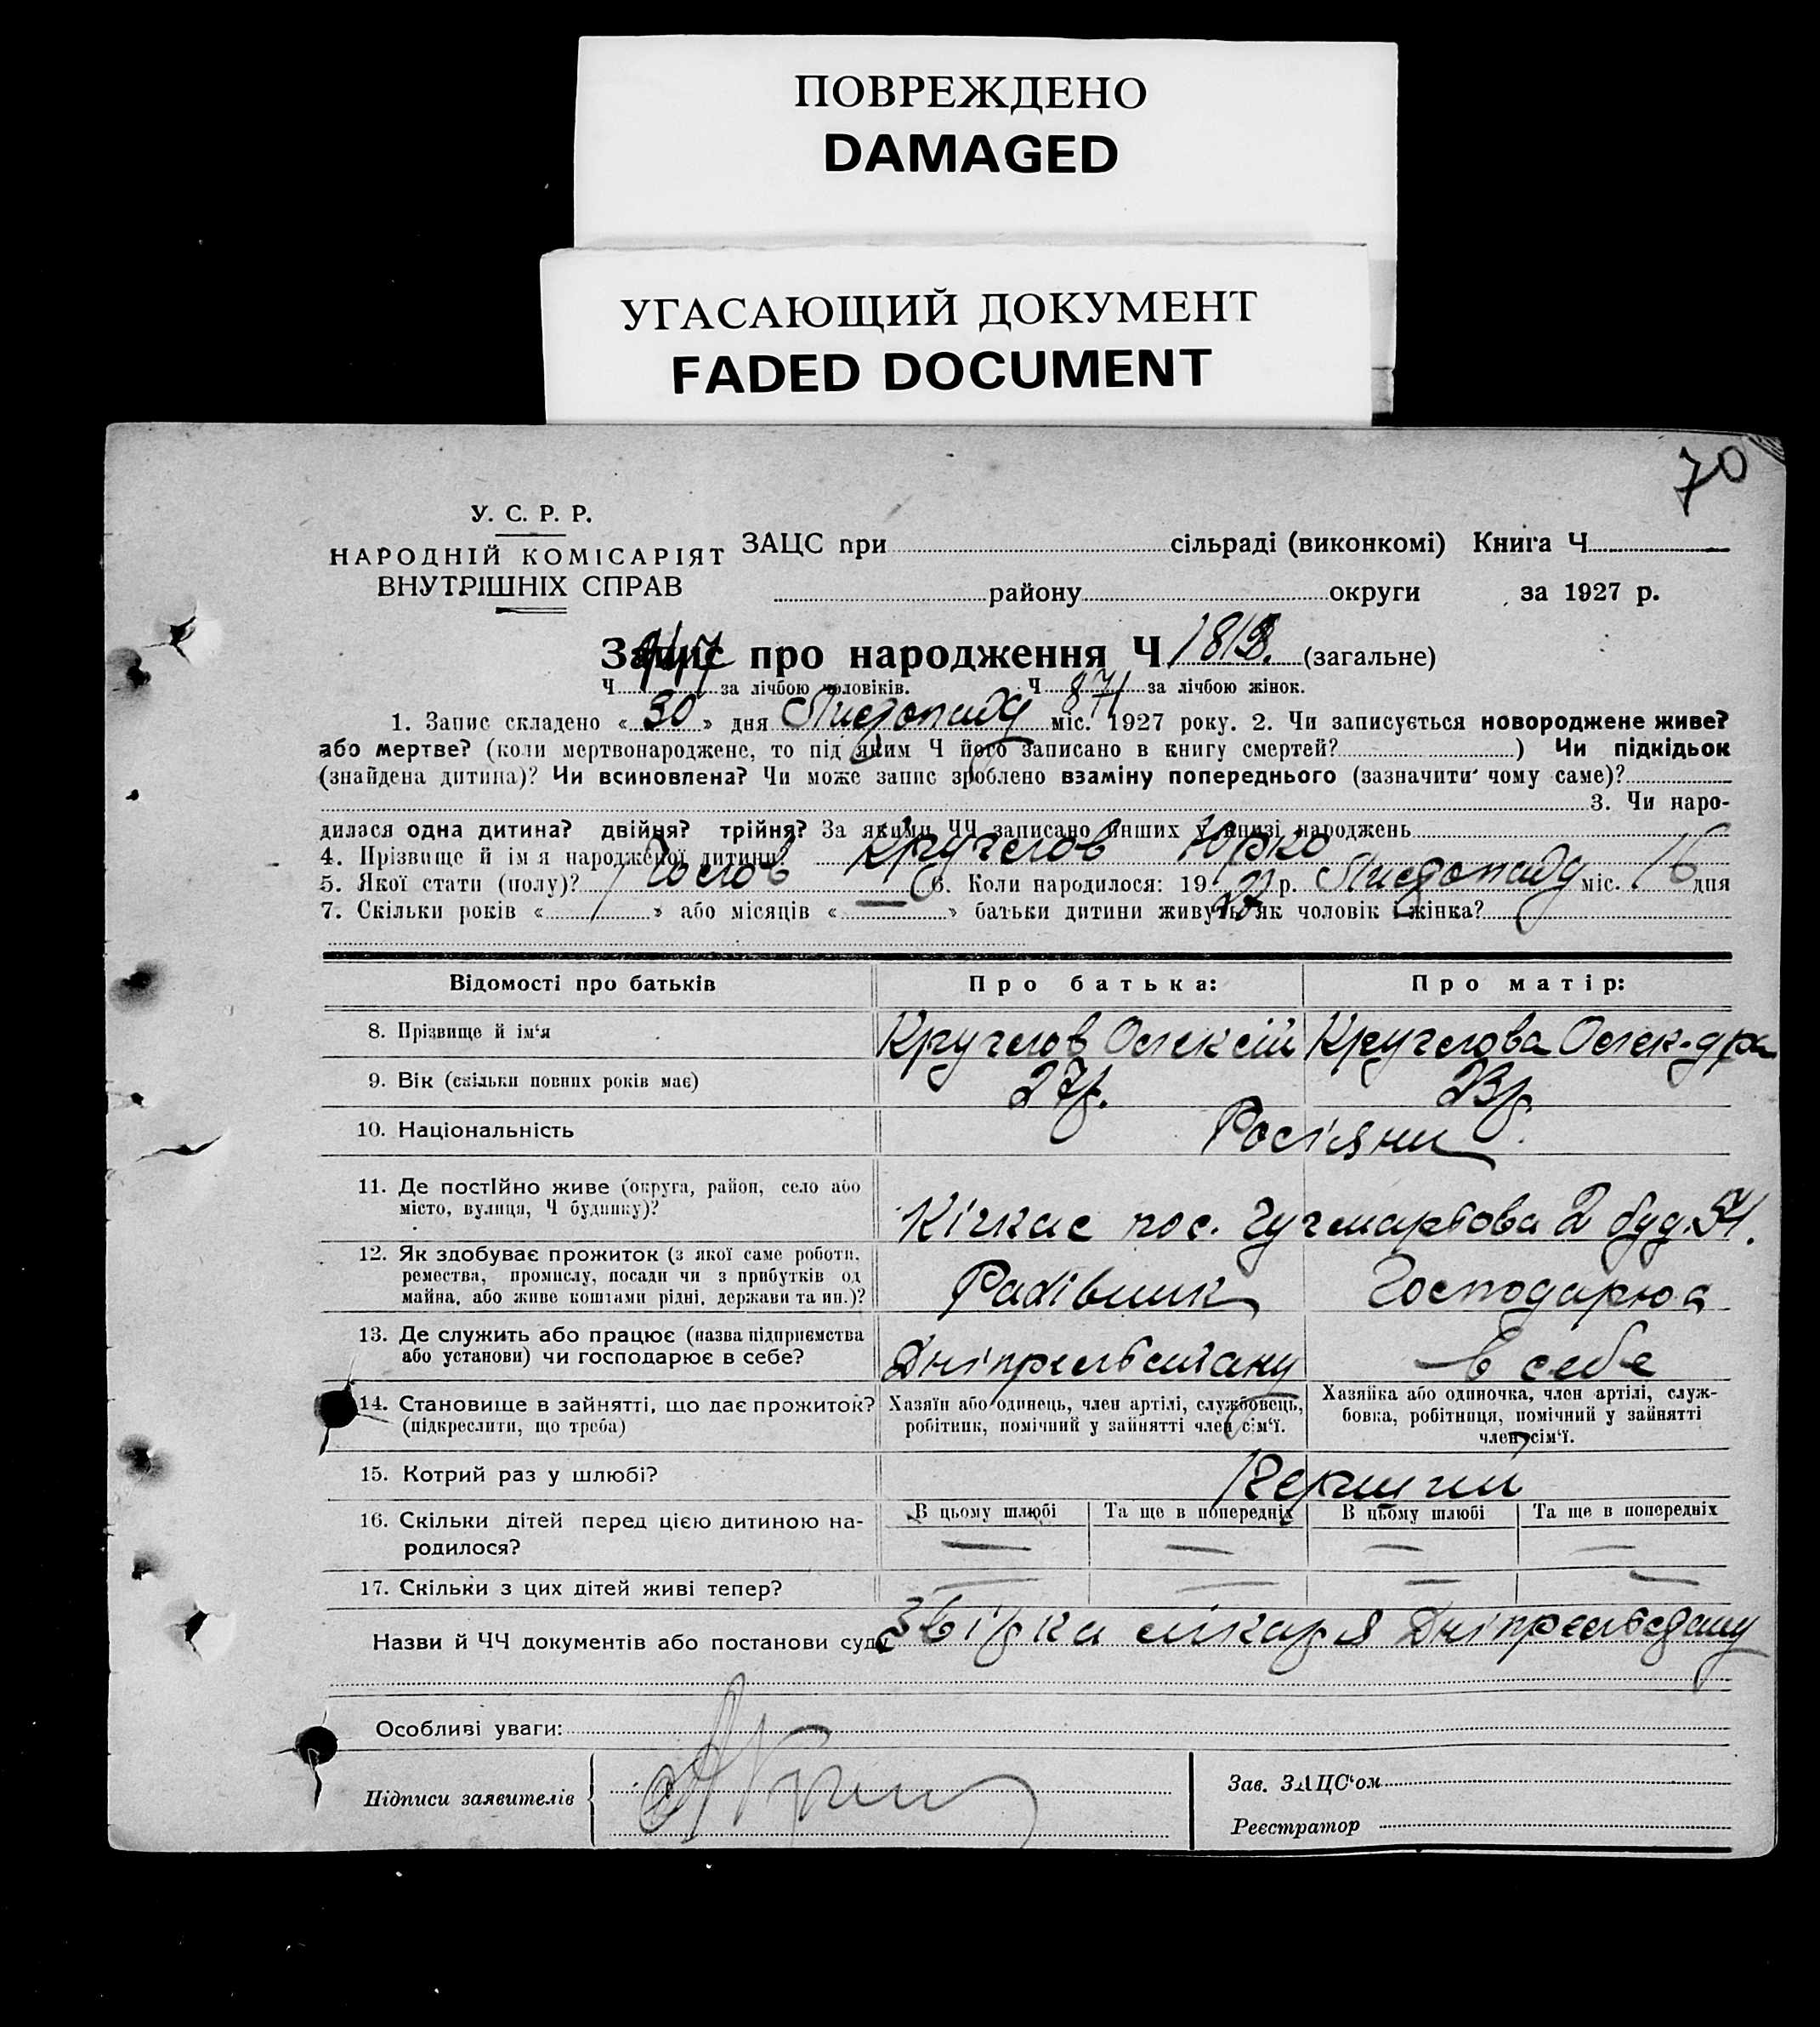 ПОВРЕЖДЕНО
DAMAGED
УГАСАЮЩИЙ ДОКУМЕНТ
FADED DOCUMENT
70
У. С. Р. Р.
НАРОДНІЙ КОМІСАРІЯТ
ВНУТРІШНІХ СПРАВ
ЗАЦС при сільраді (виконкомі) Книга Ч
району округи за 1927 р.
Запис про народження Ч (загальне)
Ч за лічбою чоловіків. Ч 871 за лічбою жінок.
1. Запис складено « 30 » дня Листопаду міс. 1927 року. 2. Чи записується новороджене живе?
або мертве? (коли мертвонароджене, то під яким Ч його записано в книгу смертей? ) Чи підкідьок
(знайдена дитина)? Чи всиновлена? Чи може запис зроблено взаміну попереднього (зазначити чому саме)?
3. Чи наро-
дилася одна дитина? двійня? трійня? За якими ЧЧ записано инших у книзі народжень
4. Прізвище й ім'я народженої дитини? Круглов Юрко
5. Якої стати (полу)? Чолов 6. Коли народилося: 19 27 р. Листопаду міс. 16 дня
7. Скільки років « 1 » або місяців « — » батьки дитини живуть як чоловік і жінка?
Відомості про батьків Про батька: Про матір:
8. Прізвище й ім'я Круглов Олексій Круглова Олек-дра
9. Вік (скільки повних років має) 27 р. 23 р.
10. Національність Росіяни
11. Де постійно живе (округа, район, село або
місто, вулиця, Ч будинку)? Кічкас пос. 2 буд. 54.
12. Як здобуває прожиток (з якої саме роботи,
ремества, промислу, посади чи з прибутків од
майна, або живе коштами рідні, держави та ин.)? Рахівник Господарює
13. Де служить або працює (назва підприємства
або установи) чи господарює в себе? Дніпрельбстану в себе
14. Становище в зайнятті, що дає прожиток?
(підкреслити, що треба)
Хазяїн або одинець, член артілі, службовець,
робітник, помічний у зайнятті член сім'ї.
Хазяйка або одиночка, член артілі, служ-
бовка, робітниця, помічний у зайнятті
член сім'ї.
15. Котрий раз у шлюбі? Перший
16. Скільки дітей перед цією дитиною на-
родилося?
В цьому шлюбі Та ще в попередніх В цьому шлюбі Та ще в попередніх
— — — —
17. Скільки з цих дітей живі тепер? — — — —
Назви й ЧЧ документів або постанови суду лікаря
Особливі уваги:
Підписи заявителів
Зав. ЗАЦС'ом
Реєстратор